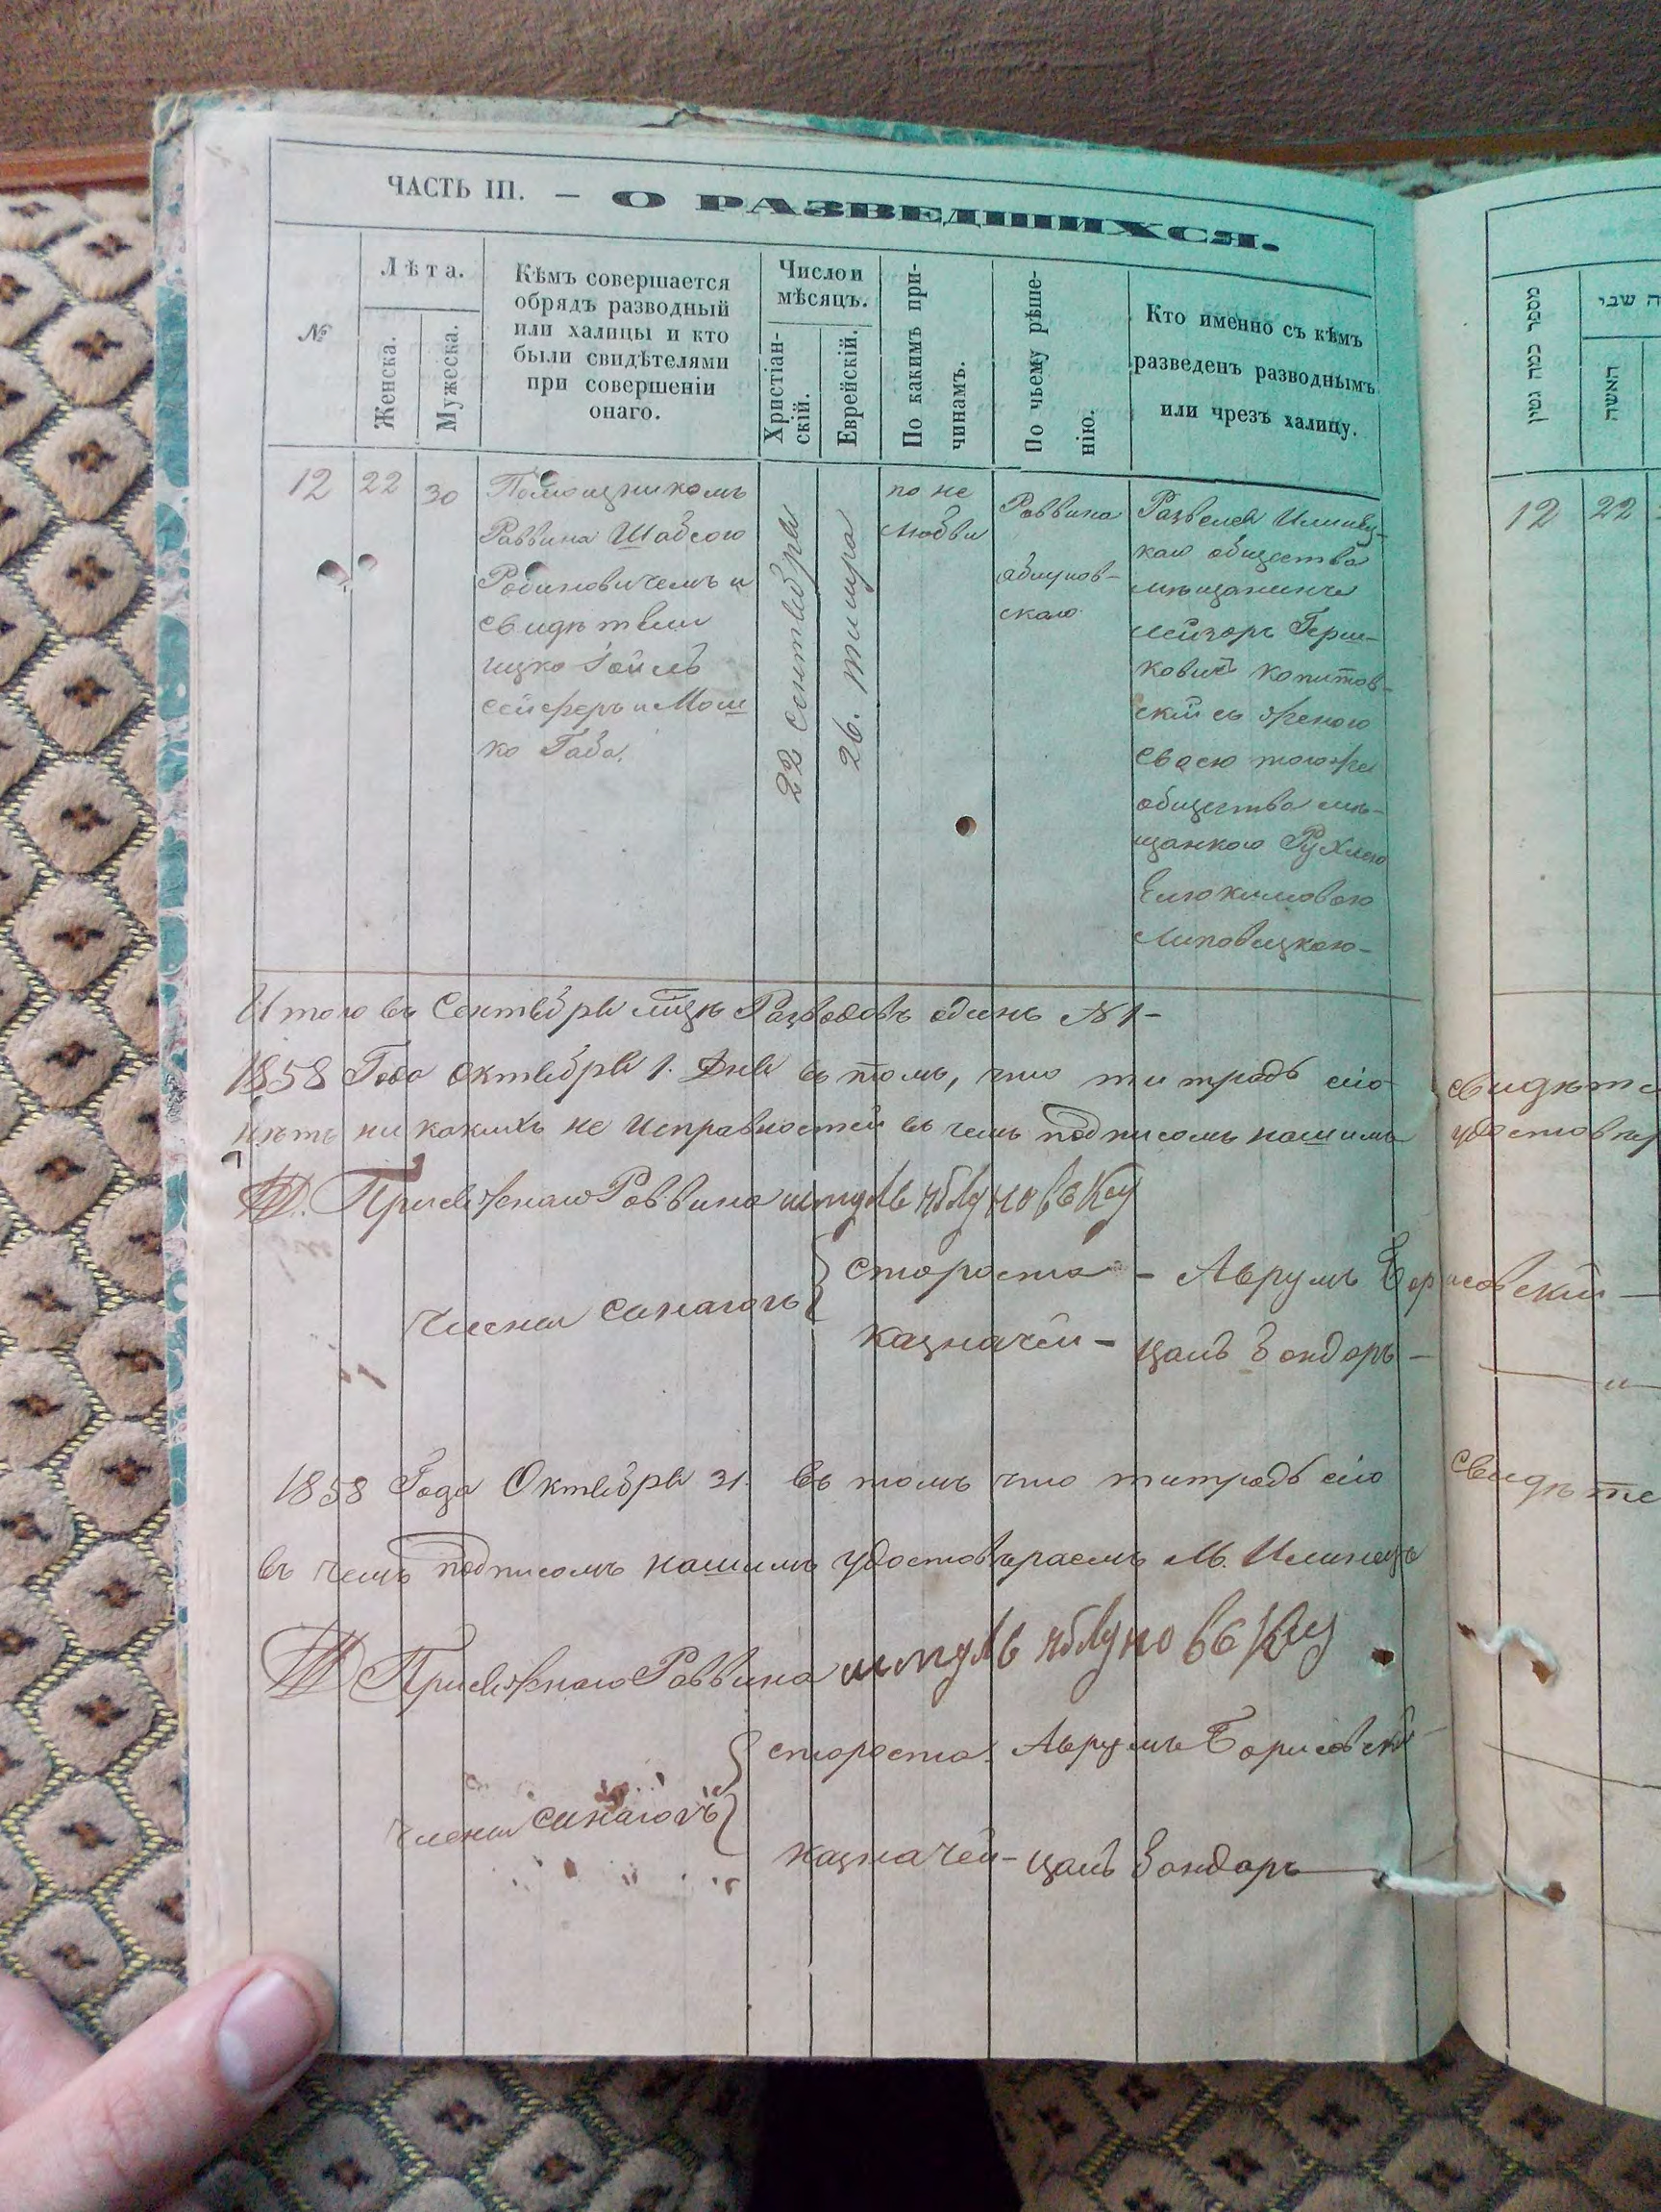 ЧАСТЬ III. — О РАЗВЕДШИХСЯ.
№
Лѣта.
Женска.
Мужеска.
Кѣмъ совершается
обрядъ разводный
или халицы и кто
были свидѣтелями
при совершеніи
онаго.
Число и
мѣсяцъ.
Христіан-
скій.
Еврейскій.
По какимъ при-
чинамъ.
По чьему рѣше-
нію.
Кто именно съ кѣмъ
разведенъ разводнымъ
или чрезъ халицу.
12
22
30
Помощникомъ
Раввина Шабсою
Робиновичемъ и
свидѣтели
ицко
сейферъ и Мош
ко Габа.
22 Сентебря
26. тишра
по не
любви
Раввина
яблунов-
скаго
Развелся Илинец-
каго общества
мѣщанинъ
Лейзоръ Герш-
ковичъ Копитов-
скій съ женою
своею тогоже
общества мѣ-
щанкою Рухлею
Липовецкою-
Итого въ Сентебря мцѣ Разводовъ одинъ № 1-
1858 Года Октебря 1. Дня въ томъ, что титрадь сію
нѣтъ ни какихъ не Исправностей въ чемъ подписомъ нашимъ
Присяжнаго Раввина шмуль яблуновску
Члены синагогъ
староста - Аврумъ Борисовскій —
казначей - цалъ Бондаръ —
1858 Года Октебря 31. въ томъ что титрадь сію
въ чемъ подписомъ нашимъ удостовѣраемъ М. Илинецъ
Присяжнаго Раввина шмуль яблуновску
Члены синагогъ
староста Аврумъ Борисовскій
казначей - цалъ Бондаръ
מספר כמה גטין
האשה
12
22
свидѣте
удостовѣр
свидѣте